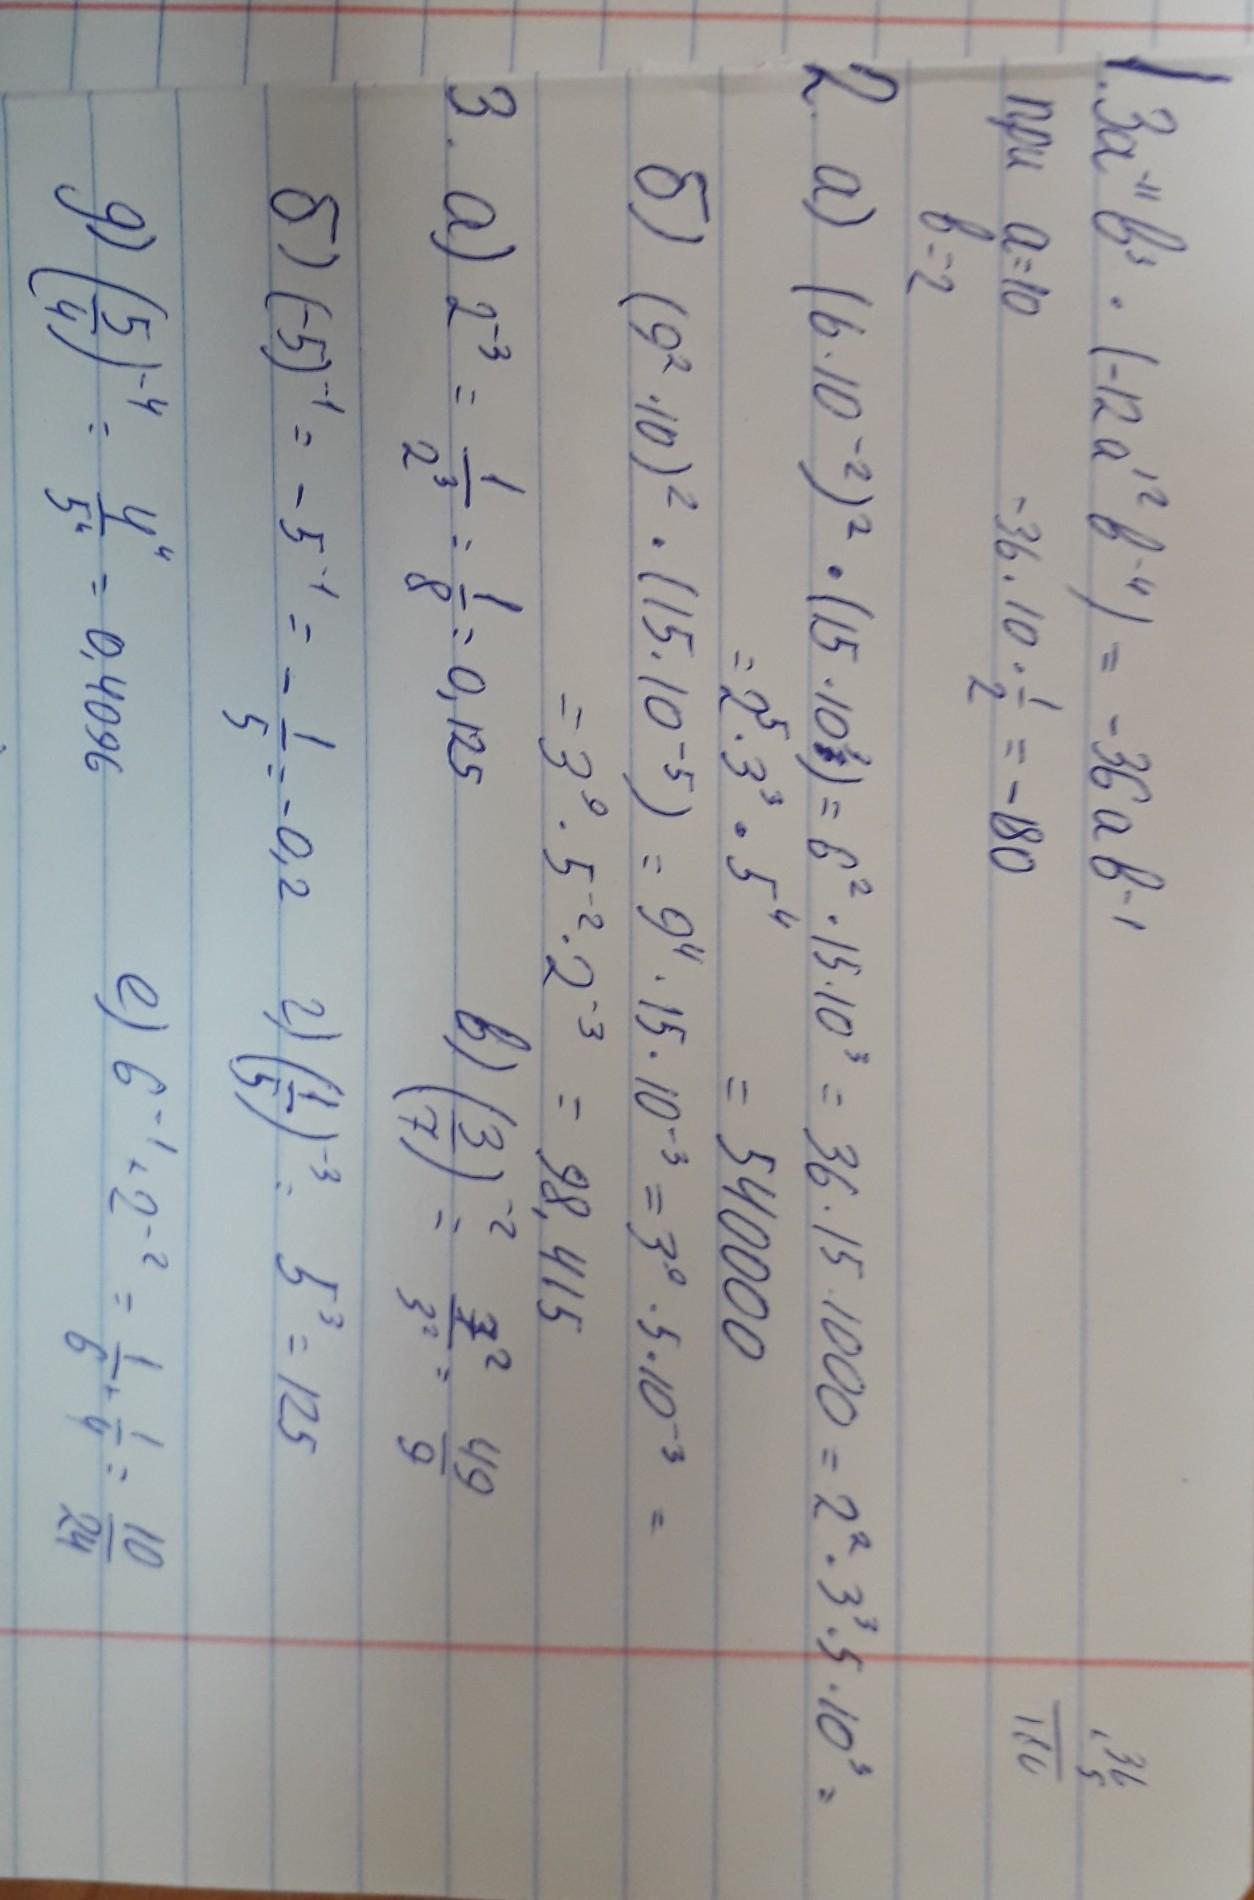 1. 3a⁻¹¹b³ · (-12a¹²b⁻⁴) = -36ab⁻¹
при a=10 -36·10·1/2 = -180
b=2
36
5
180
2. а) (6·10⁻²)² · (15·10⁷) = 6²·15·10³ = 36·15·1000 = 2²·3³·5·10³ =
= 2⁵·3³·5⁴ = 540000
б) (9²·10)² · (15·10⁻⁵) = 9⁴·15·10⁻³ = 3⁹·5·10⁻³ =
= 3⁹·5⁻²·2⁻³ = 98,415
3. а) 2⁻³ = 1/2³ = 1/8 = 0,125 в) (3/7)⁻² = 7²/3² = 49/9
б) (-5)⁻¹ = -5⁻¹ = -1/5 = -0,2 г) (1/5)⁻³ = 5³ = 125
д) (5/4)⁻⁴ = 4⁴/5⁴ = 0,4096 е) 6⁻¹+2⁻² = 1/6+1/4 = 10/24